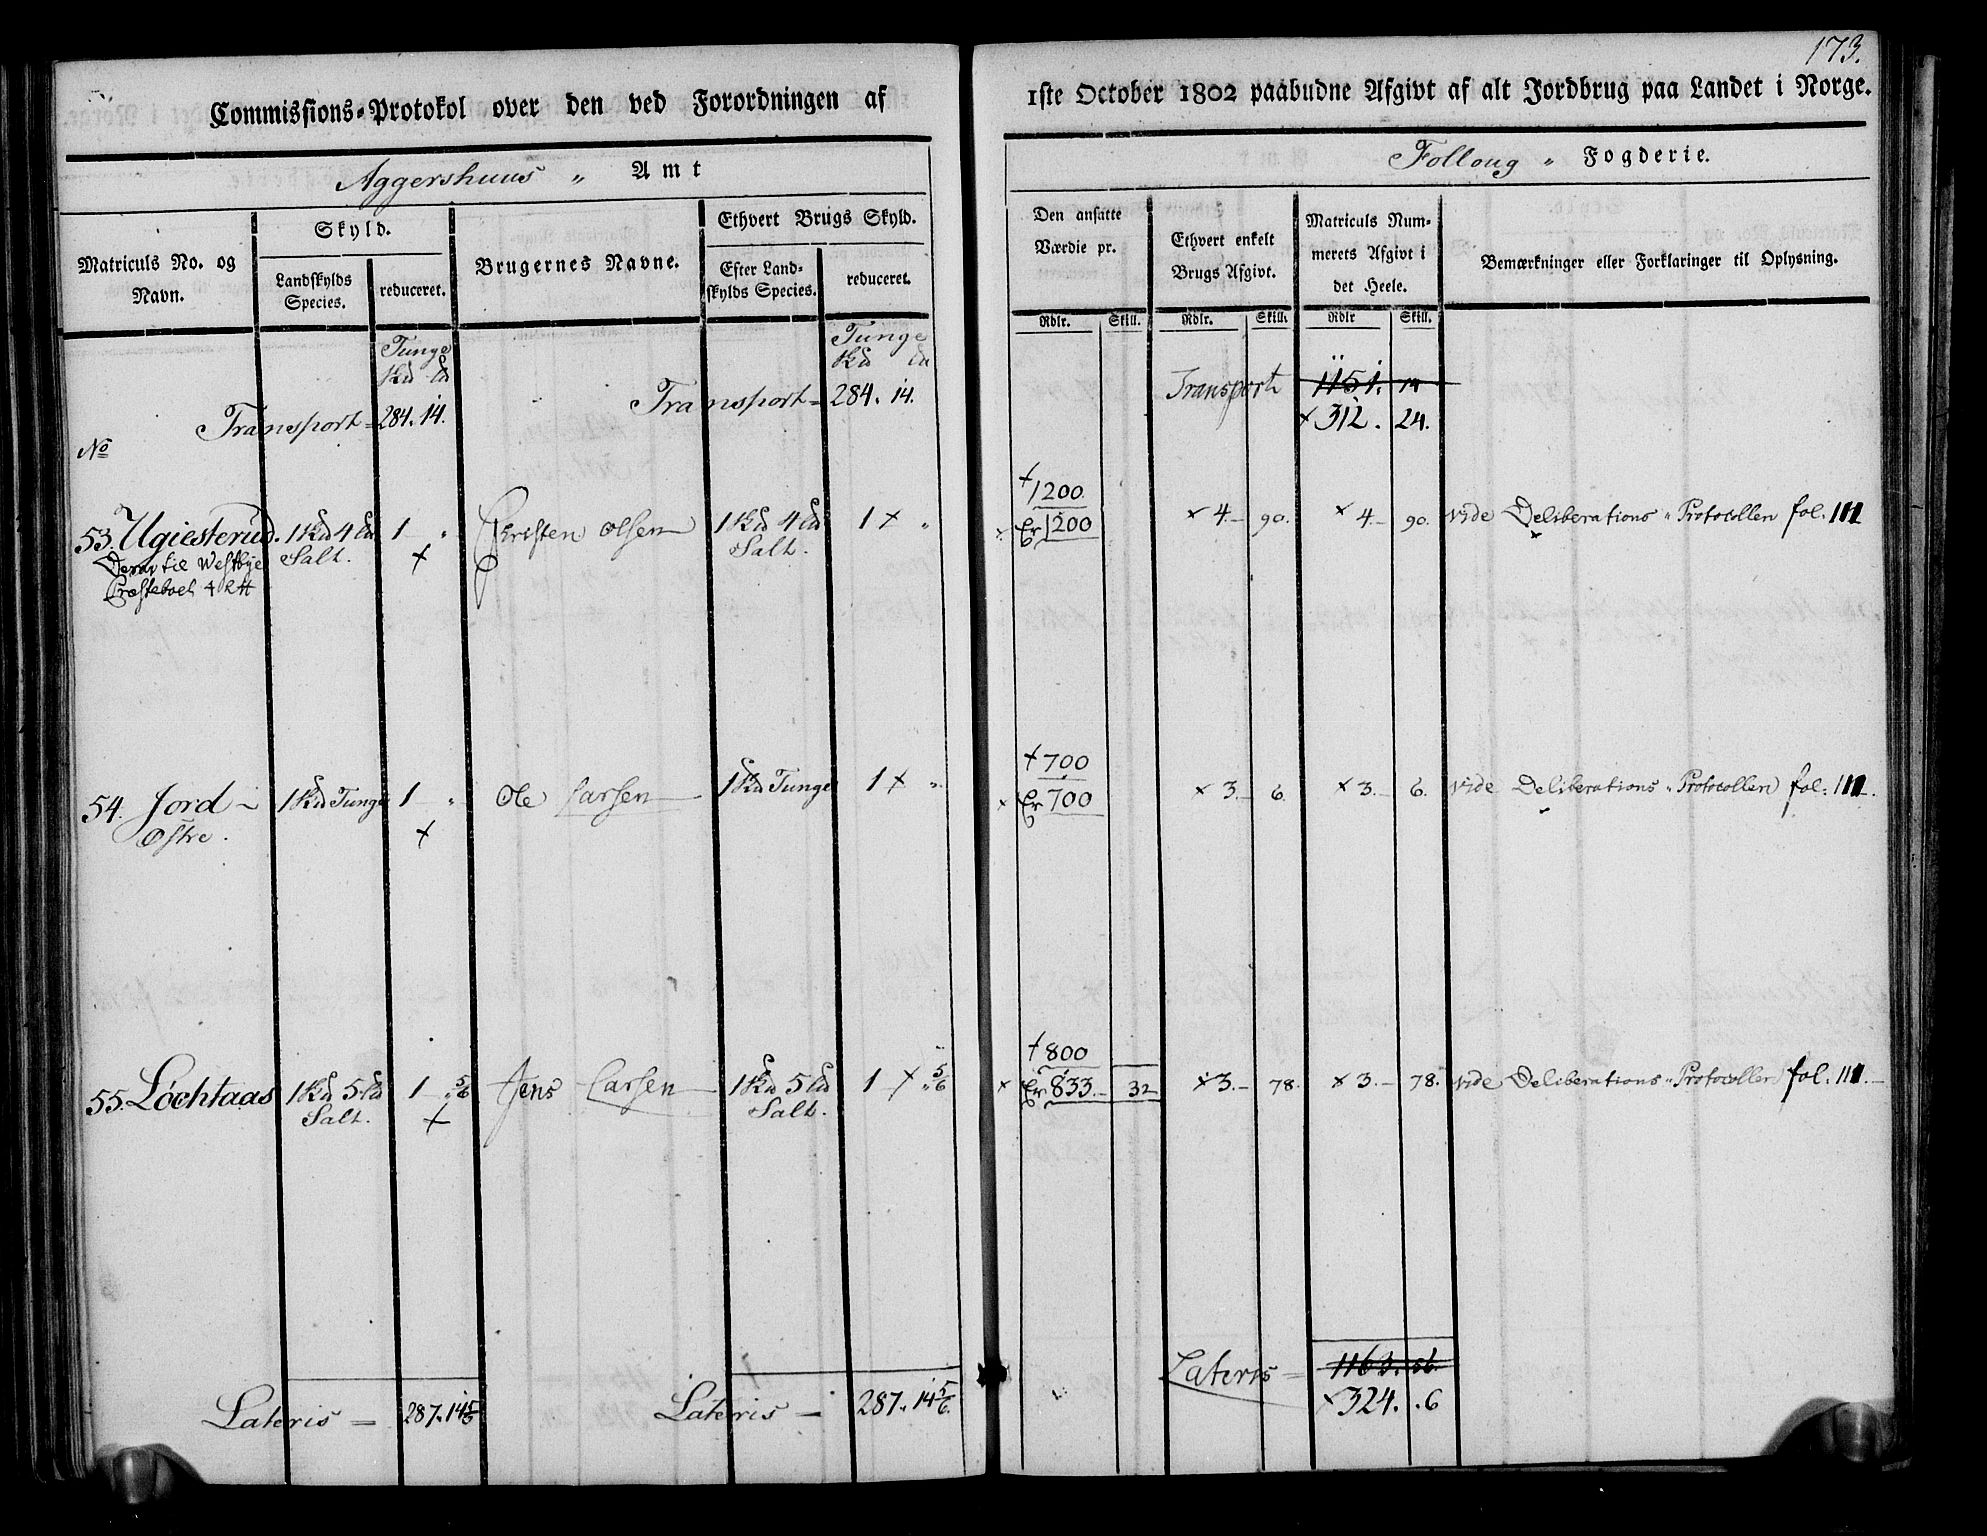 173.
Commissions-Protokol over den ved Forordningen af 1ste October 1802 paabudne Afgivt af alt Jordbrug paa Landet i Norge.
Aggershuus " Amt
Folloug " Fogderie.
Matriculs No. og Navn.
Skyld.
Landskylds Species.
reduceret.
Brugernes Navne.
Ethvert Brugs Skyld.
Efter Landskylds Species.
reduceret.
Den ansatte Værdie pr.
Ethvert enkelt Brugs Afgivt.
Matriculs Nummerets Afgivt i det Heele.
Bemærkninger eller Forklaringer til Oplysning.
Rdlr. Skill. Rdlr. Skill. Rdlr Skill.
Tunge
Tunge
Transport = 284. 14.
Transport = 284. 14.
Transport 1151. 14
× 312. 24.
No
53. Ugiesterud. 1 4
Salt. 1 " +
Christen Olsen 1 4
Salt. 1 × "
+ 1200
Er 1200
× 4.— 90. × 4.— 90. vide Deliberations " Protocollen fol. 111
til Westbye
54. Jord –
Østre.
1 Tunge 1 " +
Ole Larsen 1 Tunge 1 × "
+ 700
Er 700
× 3.— 6. × 3.— 6. vide Deliberations " Protocollen fol: 111.
55. Løchtaas 1 5
Salt. 1 " 5/6 +
Jens Larsen 1 5
Salt. 1 × " 5/6
+ 800
Er 833.— 32
× 3.— 78. × 3.— 78. vide Deliberations " Protocollen fol. 111.—
Lateris = 287. 14 5/6
Lateris — 287. 14 5/6.
Lateris = 1163. 56.
× 324. . 6